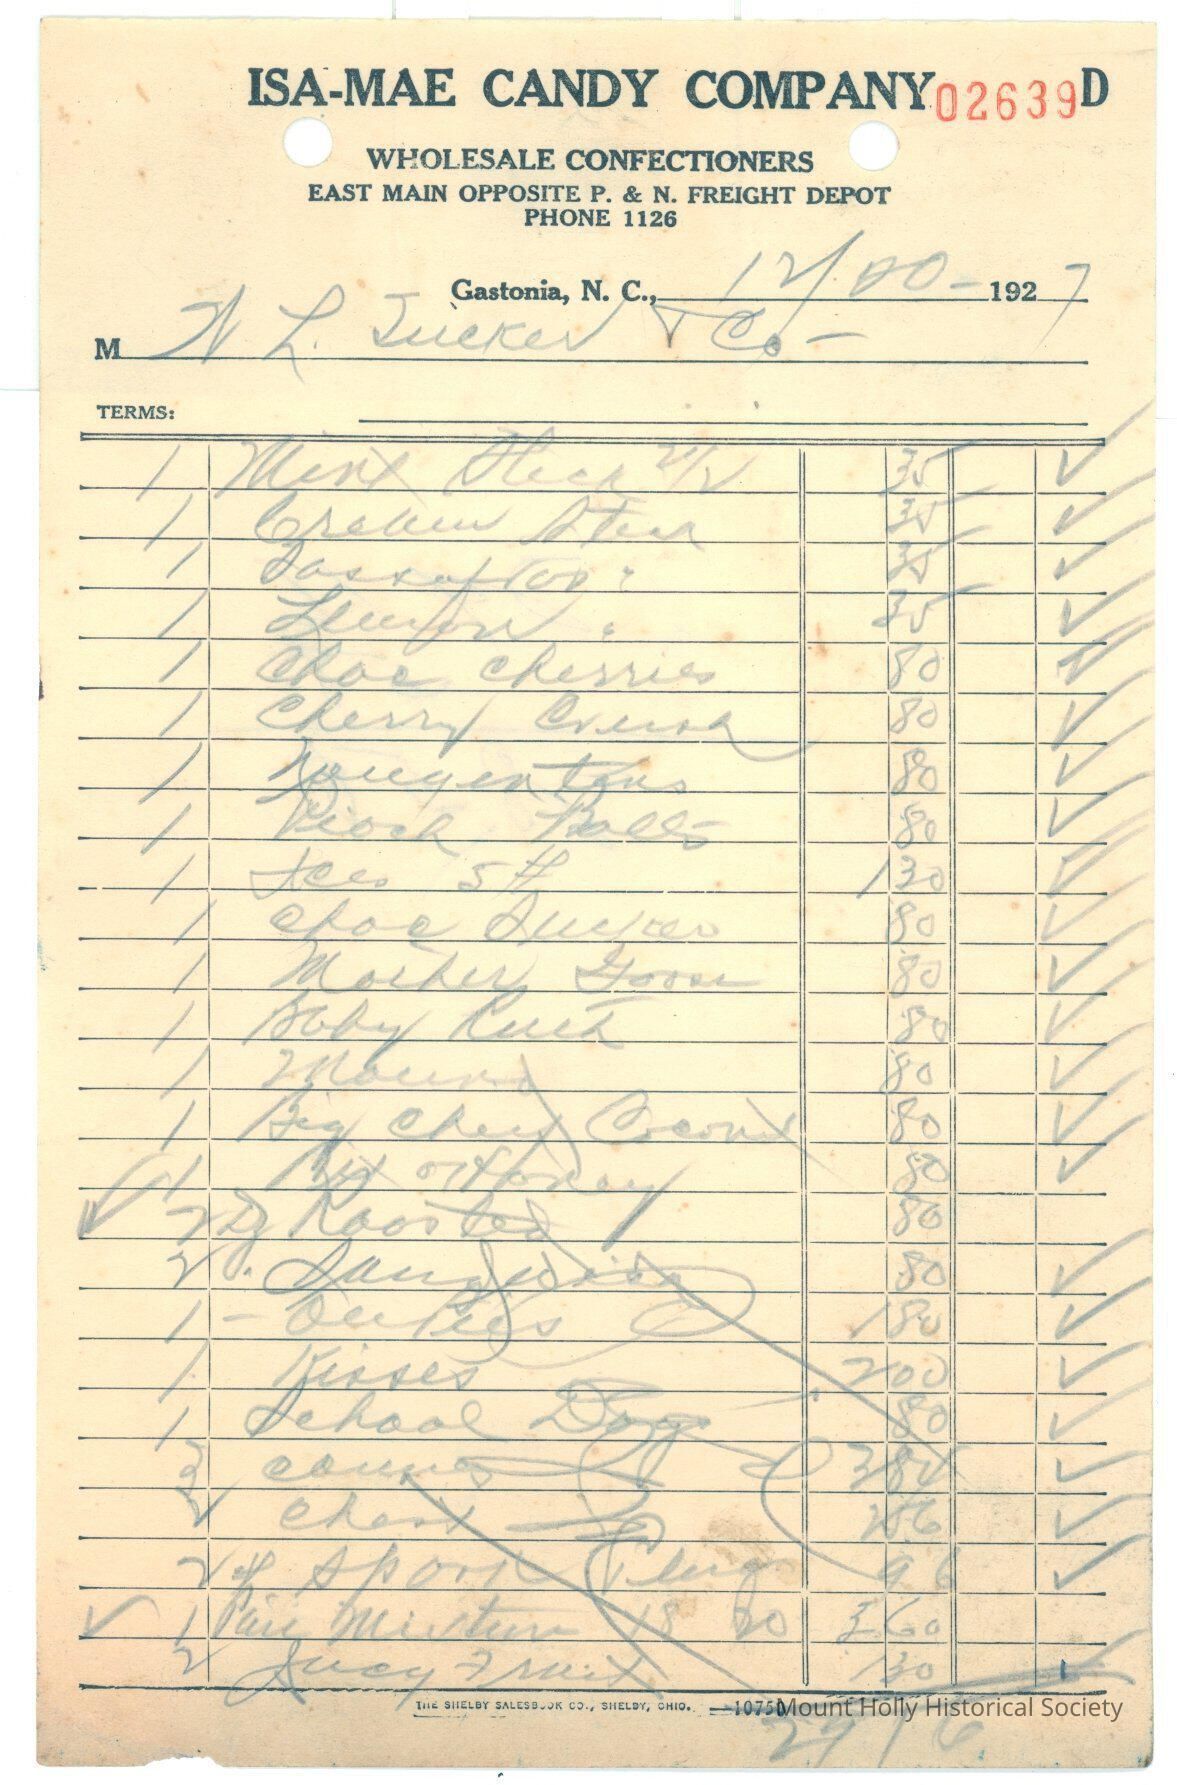 ISA-MAE CANDY COMPANY 02639 D
WHOLESALE CONFECTIONERS
EAST MAIN OPPOSITE P. & N. FREIGHT DEPOT
PHONE 1126
Gastonia, N. C., 12/20- 1927
M W L. Tucker & Co-
TERMS:
1 Mint Stick 2/2 35
1 Cream Stick 35
1 35
1 Lemon " 35
1 Choc Cherries 80
1 Cherry Crush 80
1 80
1 Balls 80
1 5# 130
1 Choc Suckers 80
1 Mother Goose 80
1 Baby Ruth 80
1 Mounds 80
1 Big Chew Coconut 80
1 Bit O Honey 80
2 Roasted 80
2 80
1 - 180
1 Kisses 200
1 School Days 80
3 384
2 256
2 # Spark Plug 96
1 Pail Mixture 18 20 360
2 Jucy Fruit 130
THE SHELBY SALESBOOK CO., SHELBY, OHIO. 10750
Mount Holly Historical Society
2916